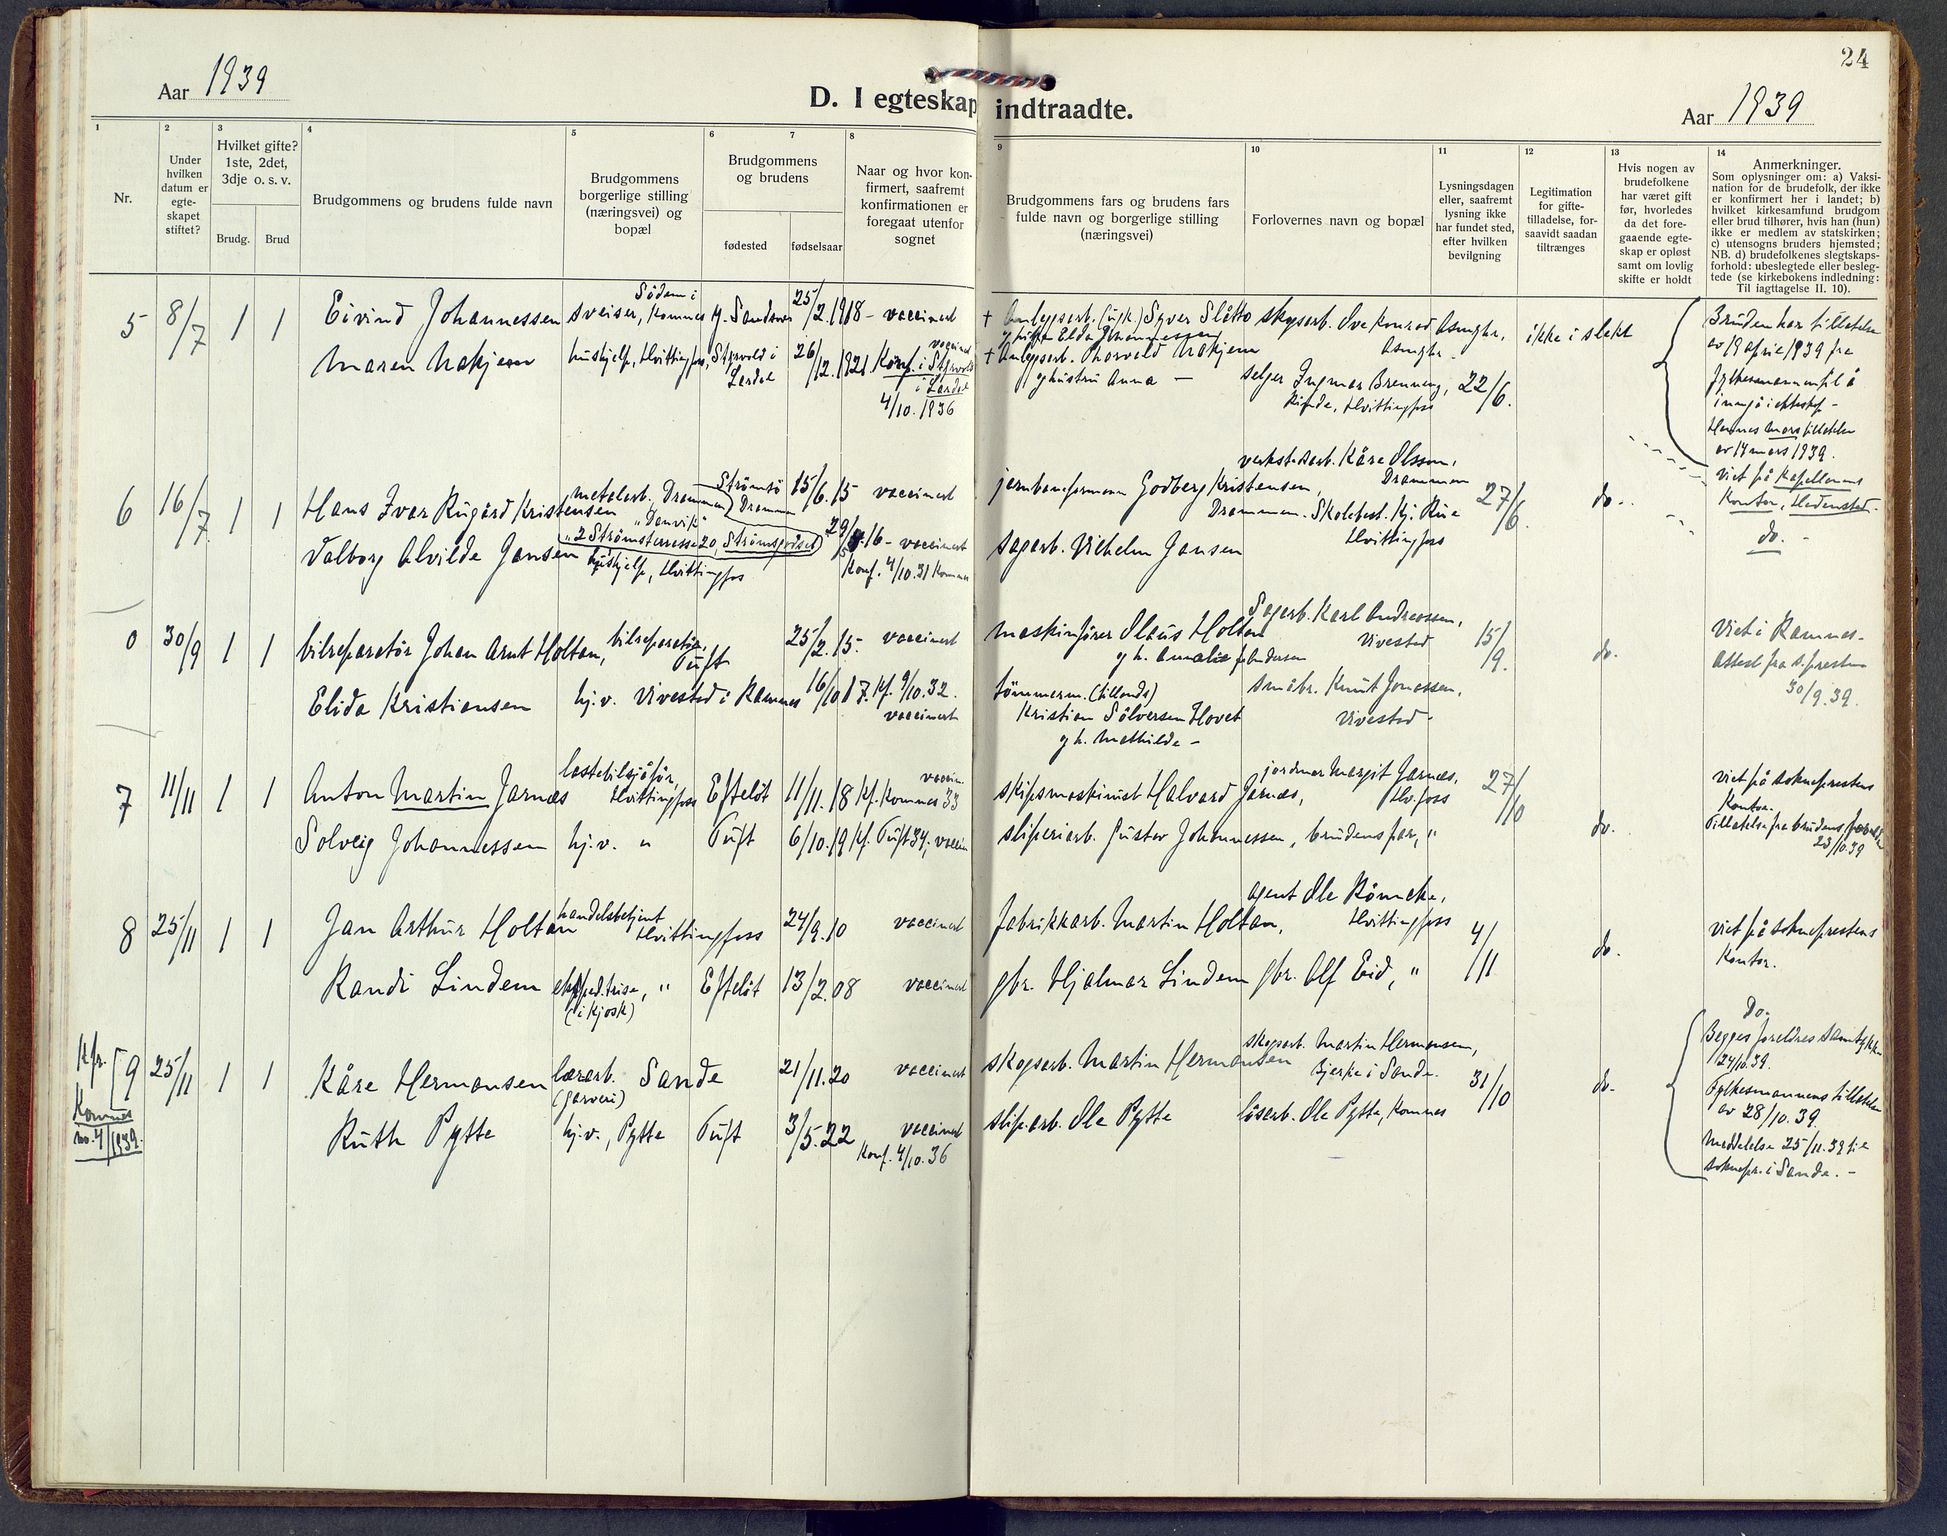 24
Aar 1939
D. I egteskap indtraadte.
Aar 1939
1
Nr.
2
Under
hvilken
datum er
egte-
skapet
stiftet?
3
Hvilket gifte?
1ste, 2det,
3dje o. s. v.
Brudg.
Brud
4
Brudgommens og brudens fulde navn
5
Brudgommens
borgerlige stilling
(næringsvei) og
bopæl
6
7
Brudgommens
og brudens
fødested
fødselsaar
8
Naar og hvor kon-
firmert, saafremt
konfirmationen er
foregaat utenfor
sognet
9
Brudgommens fars og brudens fars
fulde navn og borgerlige stilling
(næringsvei)
10
Forlovernes navn og bopæl
11
Lysningsdagen
eller, saafremt
lysning ikke
har fundet sted,
efter hvilken
bevilgning
12
Legitimation
for gifte-
tilladelse, for-
saavidt saadan
tiltrænges
13
Hvis nogen av
brudefolkene
har været gift
før, hvorledes
da det fore-
gaaende egte-
skap er opløst
samt om lovlig
skifte er holdt
14
Anmerkninger.
Som oplysninger om: a) Vaksi-
nation for de brudefolk, der ikke
er konfirmert her i landet; b)
hvilket kirkesamfund brudgom
eller brud tilhører, hvis han (hun)
ikke er medlem av statskirken;
c) utensogns bruders hjemsted;
NB. d) brudefolkenes slegtskaps-
forhold: ubeslegtede eller besleg-
tede (se kirkebokens indledning:
Til iagttagelse II. 10).
5
8/7
1
1
Eivind Johannessen
Maren Nakjem
sveiser, Komnes
hushjelp, Hvittingfoss,
Y. Sandsvær
Styrvold i
Lardal
25/2.1918
26/12.1921
- vaccinert
vaccinert
Konf. i Styrvold
i Lardal
4/10.1936
+ Anleggsarb. (ugk.) Syver Slåtto
+ Anleggsarb. Thorvald Nakjem
og hustru Anna -
skogsarb. Ove Konrad Asmyhr,
Asmyhr.
selger Ingmar Brenneng,
Hvittingfoss
22/6.
ikke i slekt
Bruden har tillatelse
av 19 april 1939 fra
fylkesmannen til å
inngå ekteskap -
Hennes mors tillatelse
av 14 mars 1939.
viet på kapellanens
Kontor, Hedenstad.
6
16/7
1
1
Hans Ivar Rugård Kristensen
Valborg Alvilde Jansen
metalarb. Drammen
"Danvik"
"2 Strømsterrasse 20, Strømsgodset"
hushjelp, Hvittingfoss
Strømsø
Drammen
15/6.15
vaccinert
16 - vaccinert
Konf. 4/10.31 Komnes
jernbaneformann Godberg Kristensen,
Drammen.
sagarb. Vilhelm Jansen
verkstedarb. Kåre Olsson,
Drammen
Skolebest. Hj. Rue
Hvittingfoss
27/6.
do.
do. -
0
30/9
1
1
bilreparatør Johan Arnt Holtan,
Elida Kristiansen
bilreparatør,
Tuft
hj.v. Vivestad i Ramnes
25/2.15.
16/10 17.
vaccinert
Kf. 9/10.32.
vaccinert
maskinfører Olaus Holtan
og h. Amalie f. Andersen
tømmerm. (tillands)
Kristian Sölversen Hovet
og h. Mathilde -
Sagarb. Karl Andreassen,
Vivestad
småbr. Knut Jonassen,
Vivestad -
15/9.
do.
Viet i Ramnes -
Attest fra s.presten
30/9.39.
7
11/11
1
1
Anton Martin Jarnæs
Solveig Johannessen
lastebilsjåfør,
Hvittingfoss
hj.v. "
Efteløt
Tuft
11/11.18
6/10.19
vaccin.
Kf. Komnes 33
Kf. Tuft 34; vaccin
skipsmaskinist Halvard Jarnæs,
sliperiarb. Gustav Johannessen,
jordmor Margit Jarnæs,
Hv.foss
brudens far, "
27/10
do.
Viet på sokneprestens
Kontor.
Tillatelse fra brudens foreldre
23/10.39
8
25/11
1
1
Jan Arthur Holtan
Randi Lindem
handelsbetjent
Hvittingfoss
ekspeditrise, "
(i kjosk)
Efteløt
24/9.10
13/2.08
vaccinert
vaccinert
fabrikkarb. Martin Holtan,
gbr. Hjalmar Lindem
agent Ole Rönneke,
Hvittingfoss
gbr. Alf Eid, "
4/11
do.
viet på sokneprestens
Kontor.
Kfr.
Komnes
no.4/1939.
9
25/11
1
1
Kåre Hermansen
Ruth Pytte
lærarb.
(garveri)
hj.v., Pytte
Sande
Tuft
21/11.20
3/5.22
vaccinert
vaccinert
Konf. 4/10.36
skogsarb. Martin Hermansen
slip.arb. Ole Pytte
skogsarb. Martin Hermansen,
Bjerke i Sande.
løsarb. Ole Pytte, Komnes
31/10
do.
Do.
Begges foreldres samtykke
24/10.39.
Fylkesmannens tillatelse
av 28/10.39.
Meddelelse 25/11.39 til
soknepr. i Sande. -